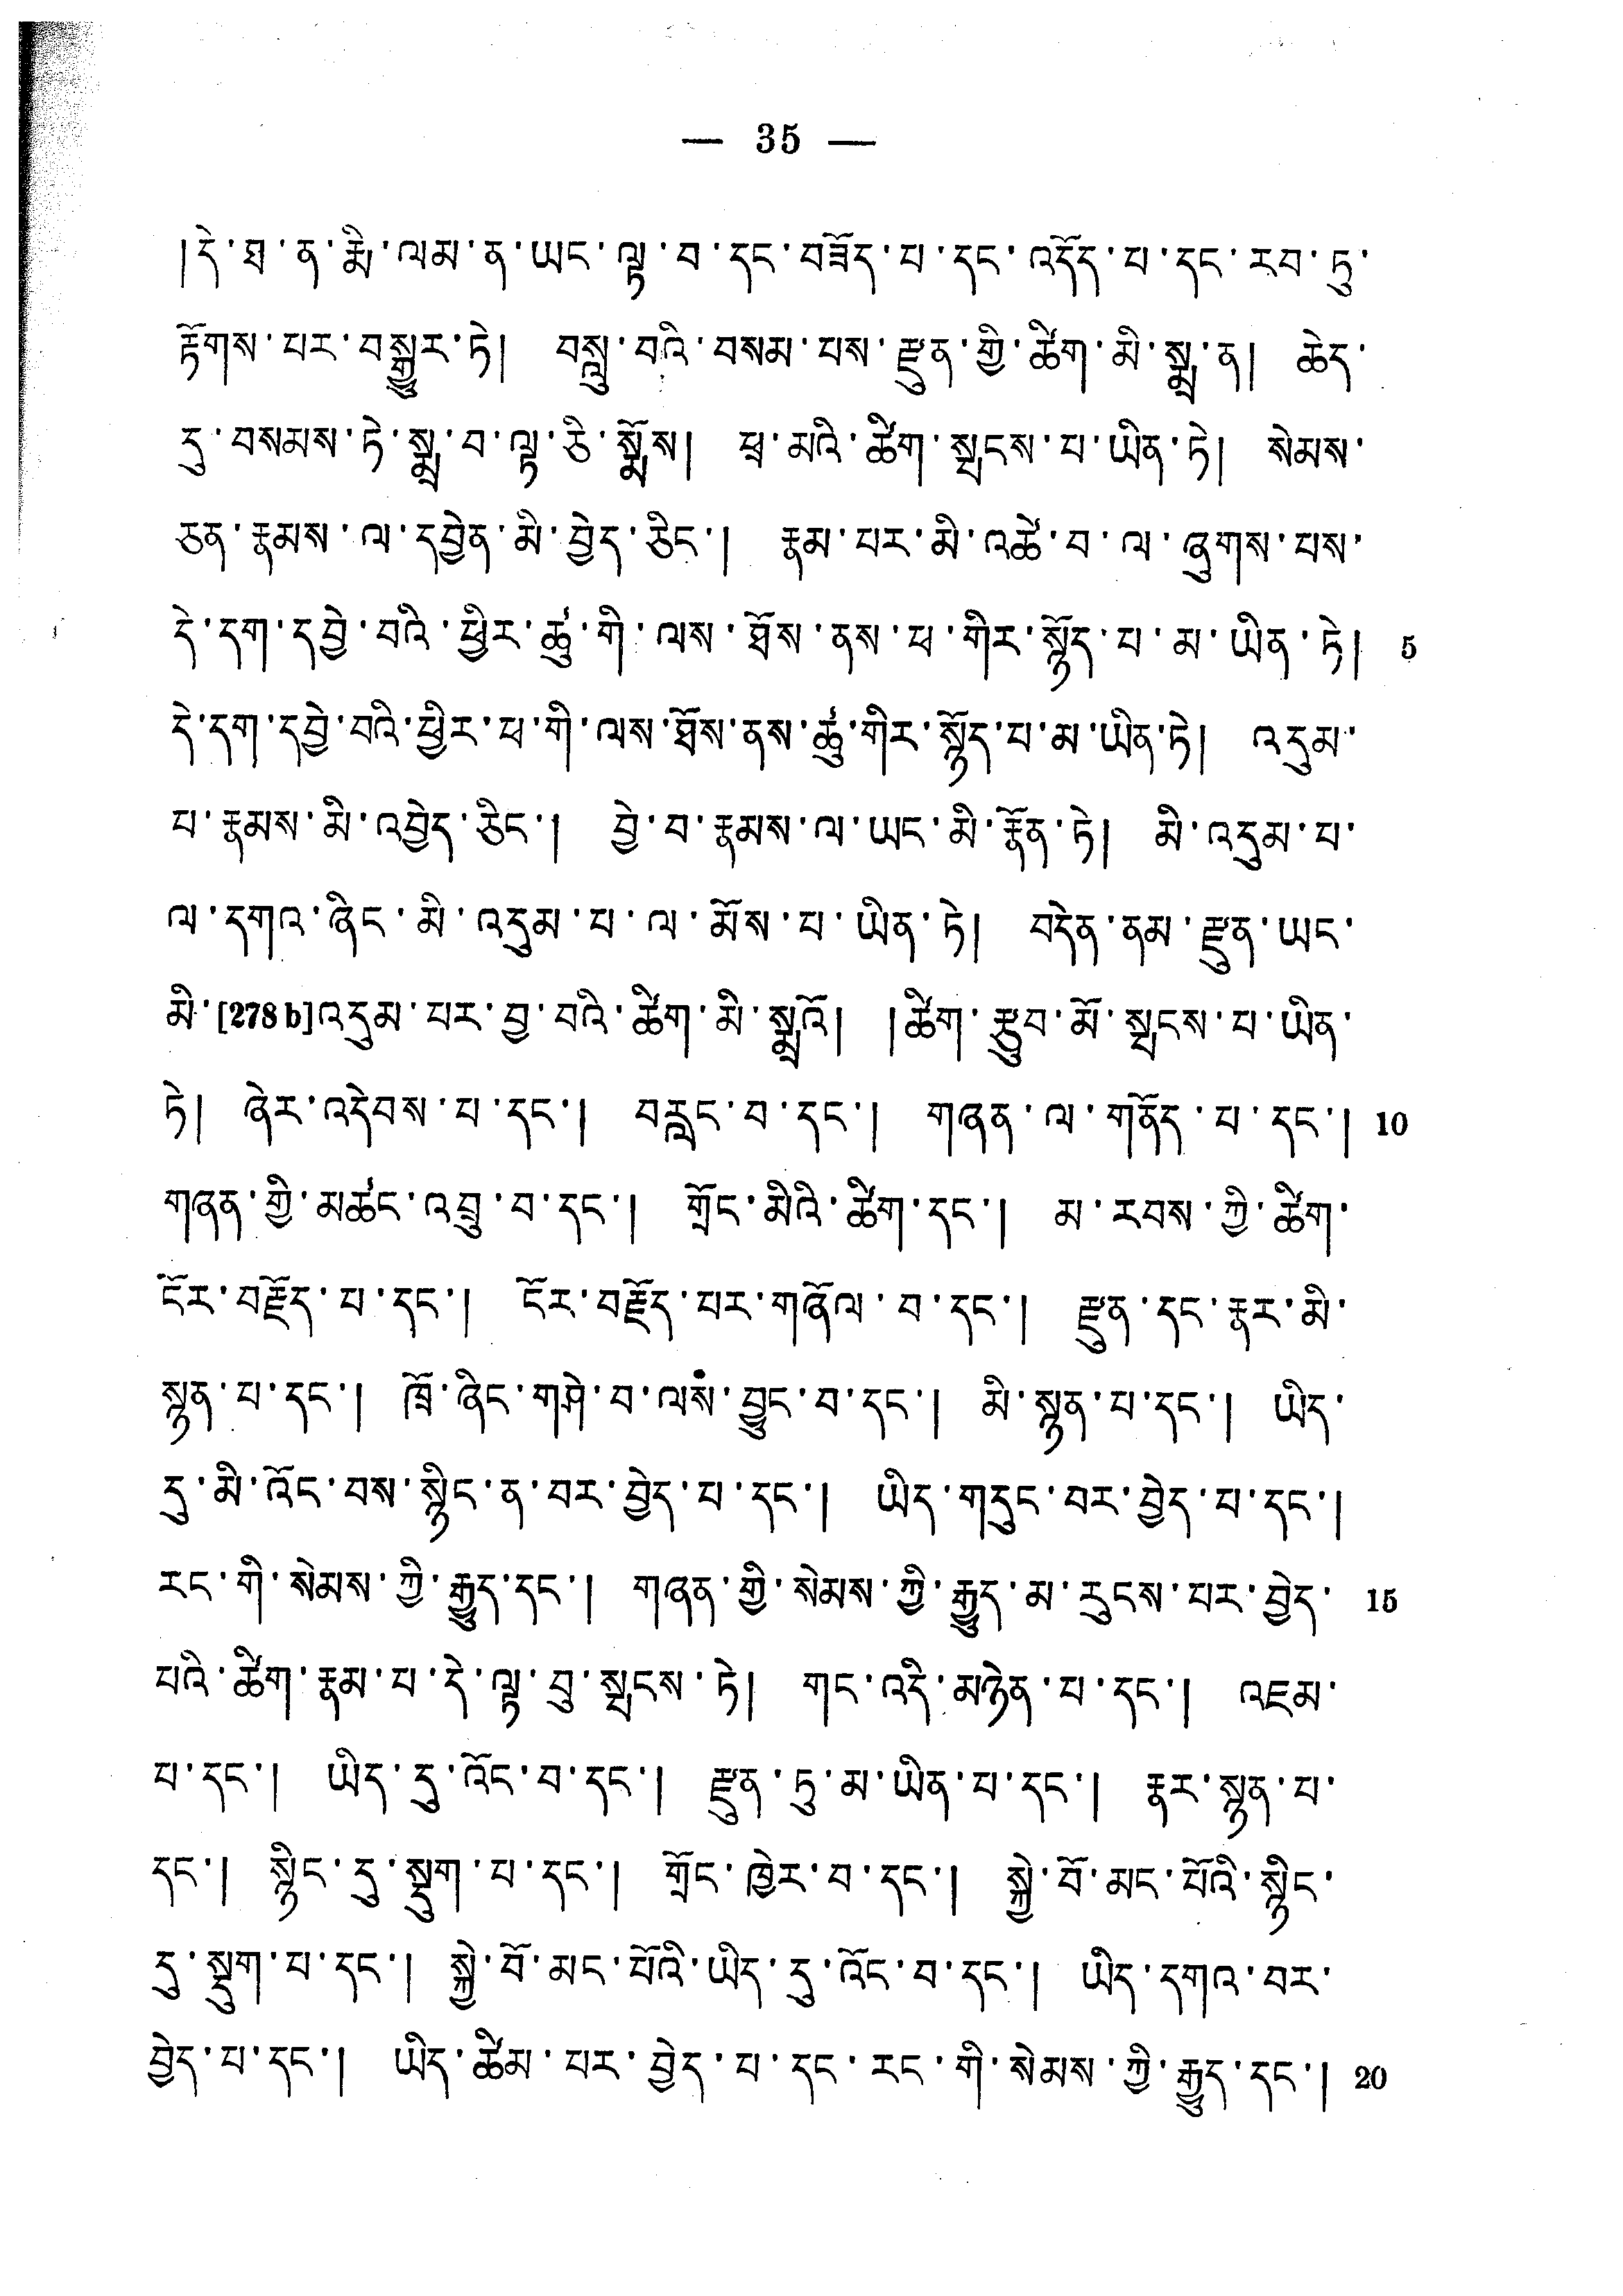 — 35 —
།དེ་ཐ་ན་རྨི་ལམ་ན་ཡང་ལྟ་བ་དང་བཟོད་པ་དང་འདོད་པ་དང་རབ་ཏུ་
རྟོགས་པར་བསྒྱུར་ཏེ། བསླུ་བའི་བསམ་པས་རྫུན་གྱི་ཚིག་མི་སྨྲ་ན། ཆེད་
དུ་བསམས་ཏེ་སྨྲ་བ་ལྟ་ཅི་སྨོས། ཕྲ་མའི་ཚིག་སྤངས་པ་ཡིན་ཏེ། སེམས་
ཅན་རྣམས་ལ་དབྱེན་མི་བྱེད་ཅིང་། རྣམ་པར་མི་འཚེ་བ་ལ་ཞུགས་པས་
དེ་དག་དབྱེ་བའི་ཕྱིར་ཚུ་གི་ལས་ཐོས་ནས་ཕ་གིར་སྙོད་པ་མ་ཡིན་ཏེ། 5
དེ་དག་དབྱེ་བའི་ཕྱིར་ཕ་གི་ལས་ཐོས་ནས་ཚུ་གིར་སྙོད་པ་མ་ཡིན་ཏེ། འདུམ་
པ་རྣམས་མི་འབྱེད་ཅིང་། བྱེ་བ་རྣམས་ལ་ཡང་མི་རྣོན་ཏེ། མི་འདུམ་པ་
ལ་དགའ་ཞིང་མི་འདུམ་པ་ལ་མོས་པ་ཡིན་ཏེ། བདེན་ནམ་རྫུན་ཡང་
མི་[278 b]འདུམ་པར་བྱ་བའི་ཚིག་མི་སྨྲའོ། །ཚིག་རྩུབ་མོ་སྤངས་པ་ཡིན་
ཏེ། ཞེར་འདེབས་པ་དང་། བརླང་བ་དང་། གཞན་ལ་གནོད་པ་དང་། 10
གཞན་གྱི་མཚང་འབྲུ་བ་དང་། གྲོང་མིའི་ཚིག་དང་། མ་རབས་ཀྱི་ཚིག་
ངོར་བརྗོད་པ་དང་། ངོར་བརྗོད་པར་གཞོལ་བ་དང་། རྫུན་དང་རྣར་མི་
སྙན་པ་དང་། ཁྲོ་ཞིང་གཤེ་བ་ལས་བྱུང་བ་དང་། མི་སྙན་པ་དང་། ཡིད་
དུ་མི་འོང་བས་སྙིང་ན་བར་བྱེད་པ་དང་། ཡིད་གདུང་བར་བྱེད་པ་དང་།
རང་གི་སེམས་ཀྱི་རྒྱུད་དང་། གཞན་གྱི་སེམས་ཀྱི་རྒྱུད་མ་རུངས་པར་བྱེད་ 15
པའི་ཚིག་རྣམ་པ་དེ་ལྟ་བུ་སྤངས་ཏེ། གང་འདི་མཉེན་པ་དང་། འཇམ་
པ་དང་། ཡིད་དུ་འོང་བ་དང་། རྫུན་ཏུ་མ་ཡིན་པ་དང་། རྣར་སྙན་པ་
དང་། སྙིང་དུ་སྡུག་པ་དང་། གྲོང་ཁྱེར་བ་དང་། སྐྱེ་བོ་མང་པོའི་སྙིང་
དུ་སྡུག་པ་དང་། སྐྱེ་བོ་མང་པོའི་ཡིད་དུ་འོང་བ་དང་། ཡིད་དགའ་བར་
བྱེད་པ་དང་། ཡིད་ཚིམ་པར་བྱེད་པ་དང་རང་གི་སེམས་ཀྱི་རྒྱུད་དང་། 20